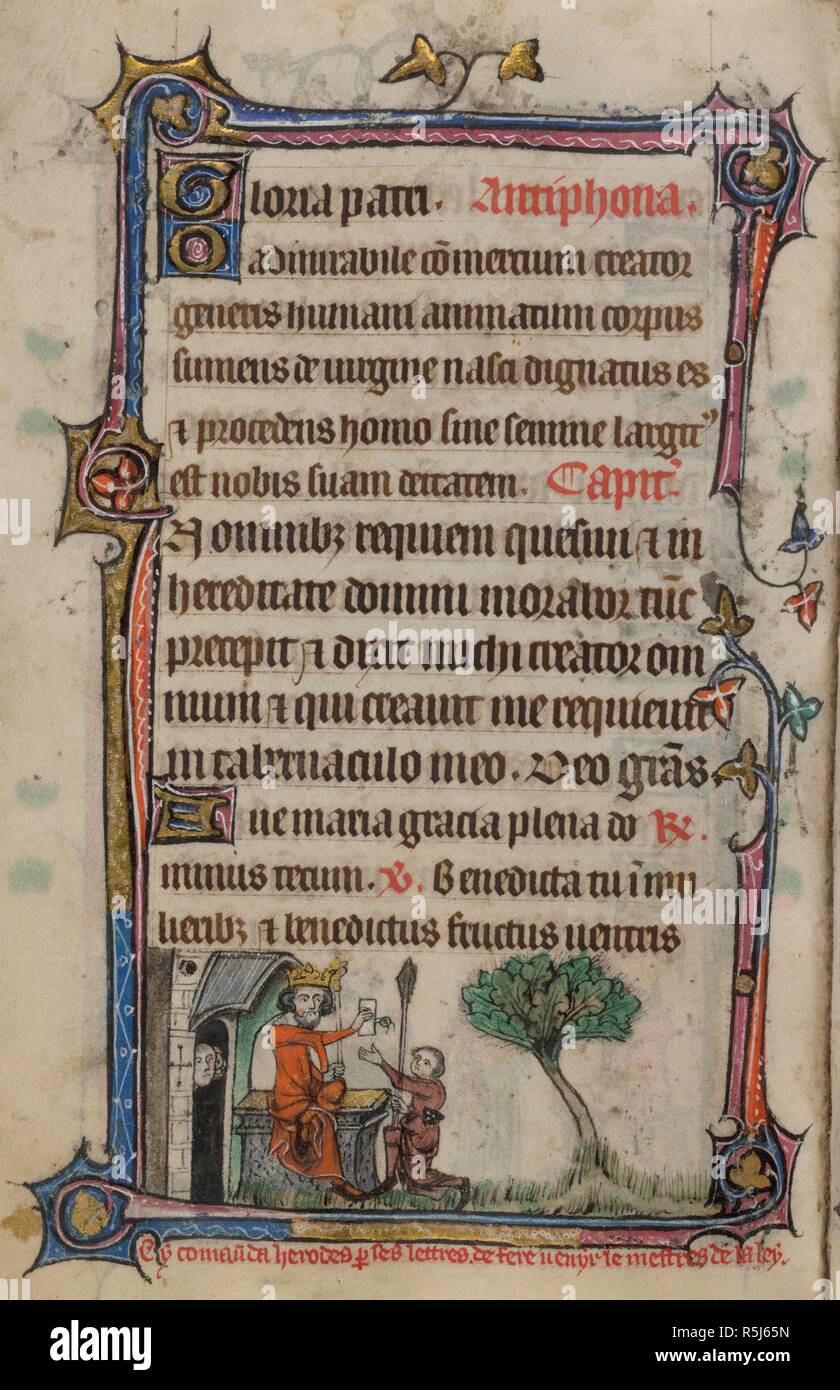 Gloria patri. Antiphona.
O admirabile cōmercium creator
generis humani animatum corpus
sumens de uirgine nasci dignatus es
⁊ procedens homo sine semine largit᷒
est nobis suam deitatem. Capitl̄.
In omnibꝫ requiem quesiui ⁊ in
hereditate domini morabor tūc
precepit ⁊ dixit michi creator om
nium ⁊ qui creauit me requieuit
in tabernaculo meo. Deo grās.
Aue maria gracia plena do ℟.
minus tecum. ℣. Benedicta tu ī mu
lieribꝫ ⁊ benedictus fructus uentris
Cy comaūda herodes ꝑ ses lettres. de fere uenyr le mestres de la ley.
alamy
Image ID: R5J65N
www.alamy.com